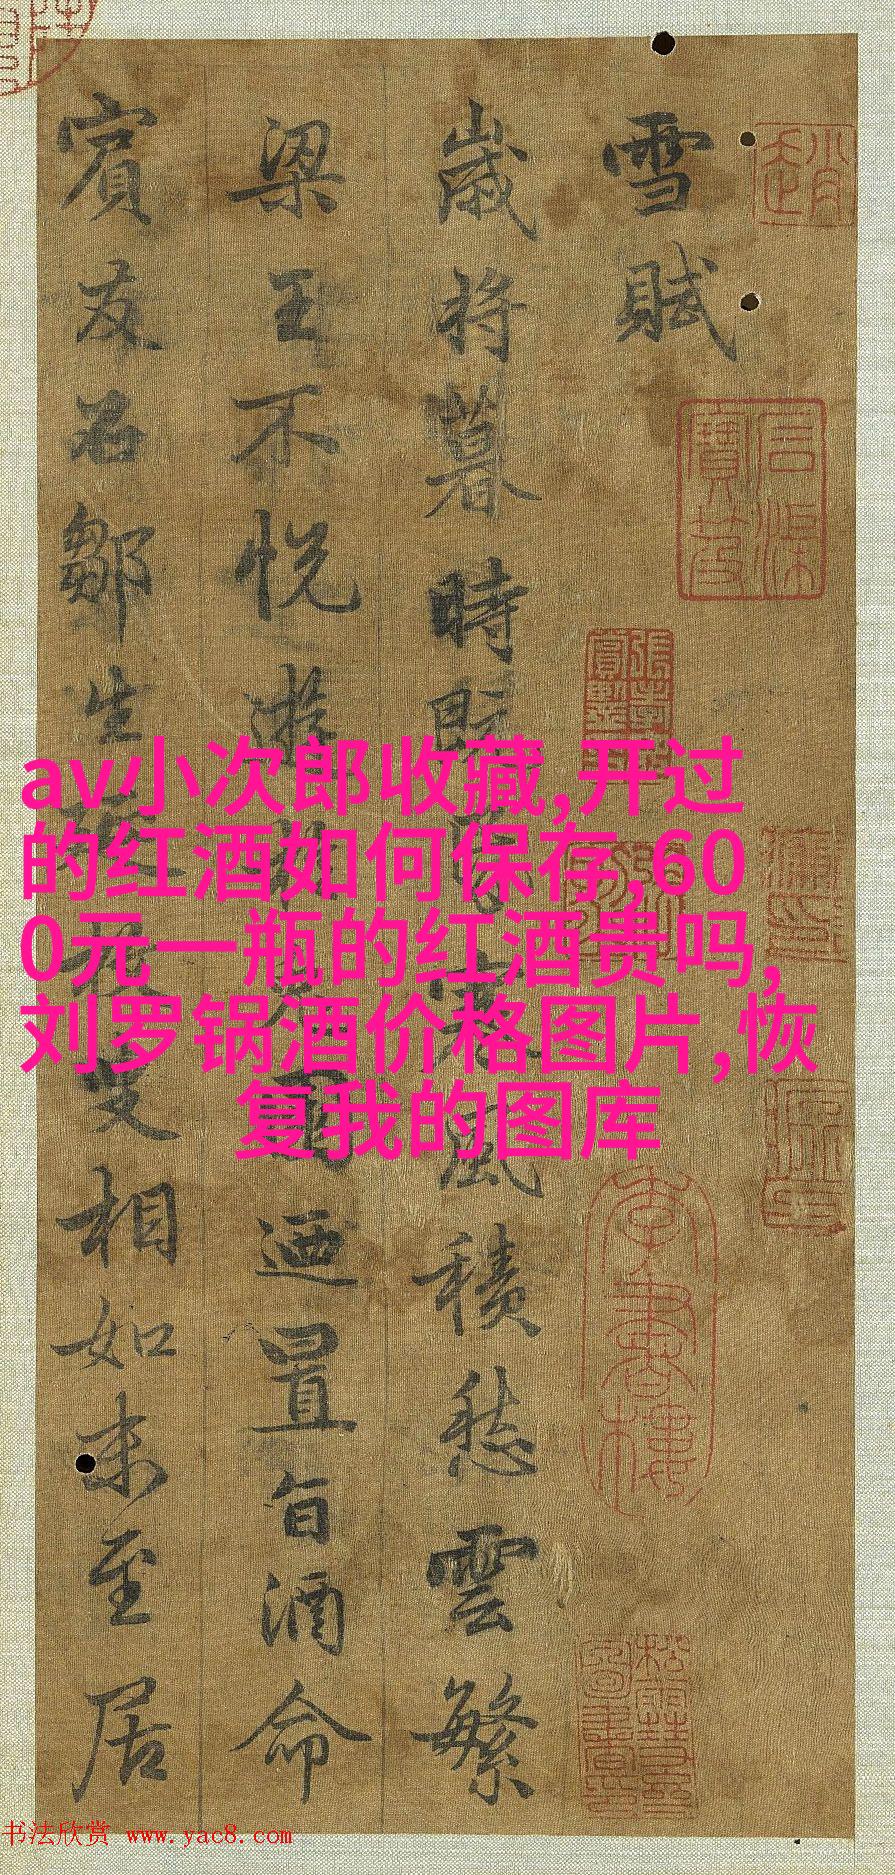 雪賦
歲將暮時既寒風積愁雲繁
梁王不悅遊迺置旨酒命
賓友召鄒生叟相如未至居
av小次郎收藏,开过
的红酒如何保存,60
0元一瓶的红酒贵吗,
刘罗锅酒价格图片,恢
复我的图库
书法欣赏 www.yac8.com